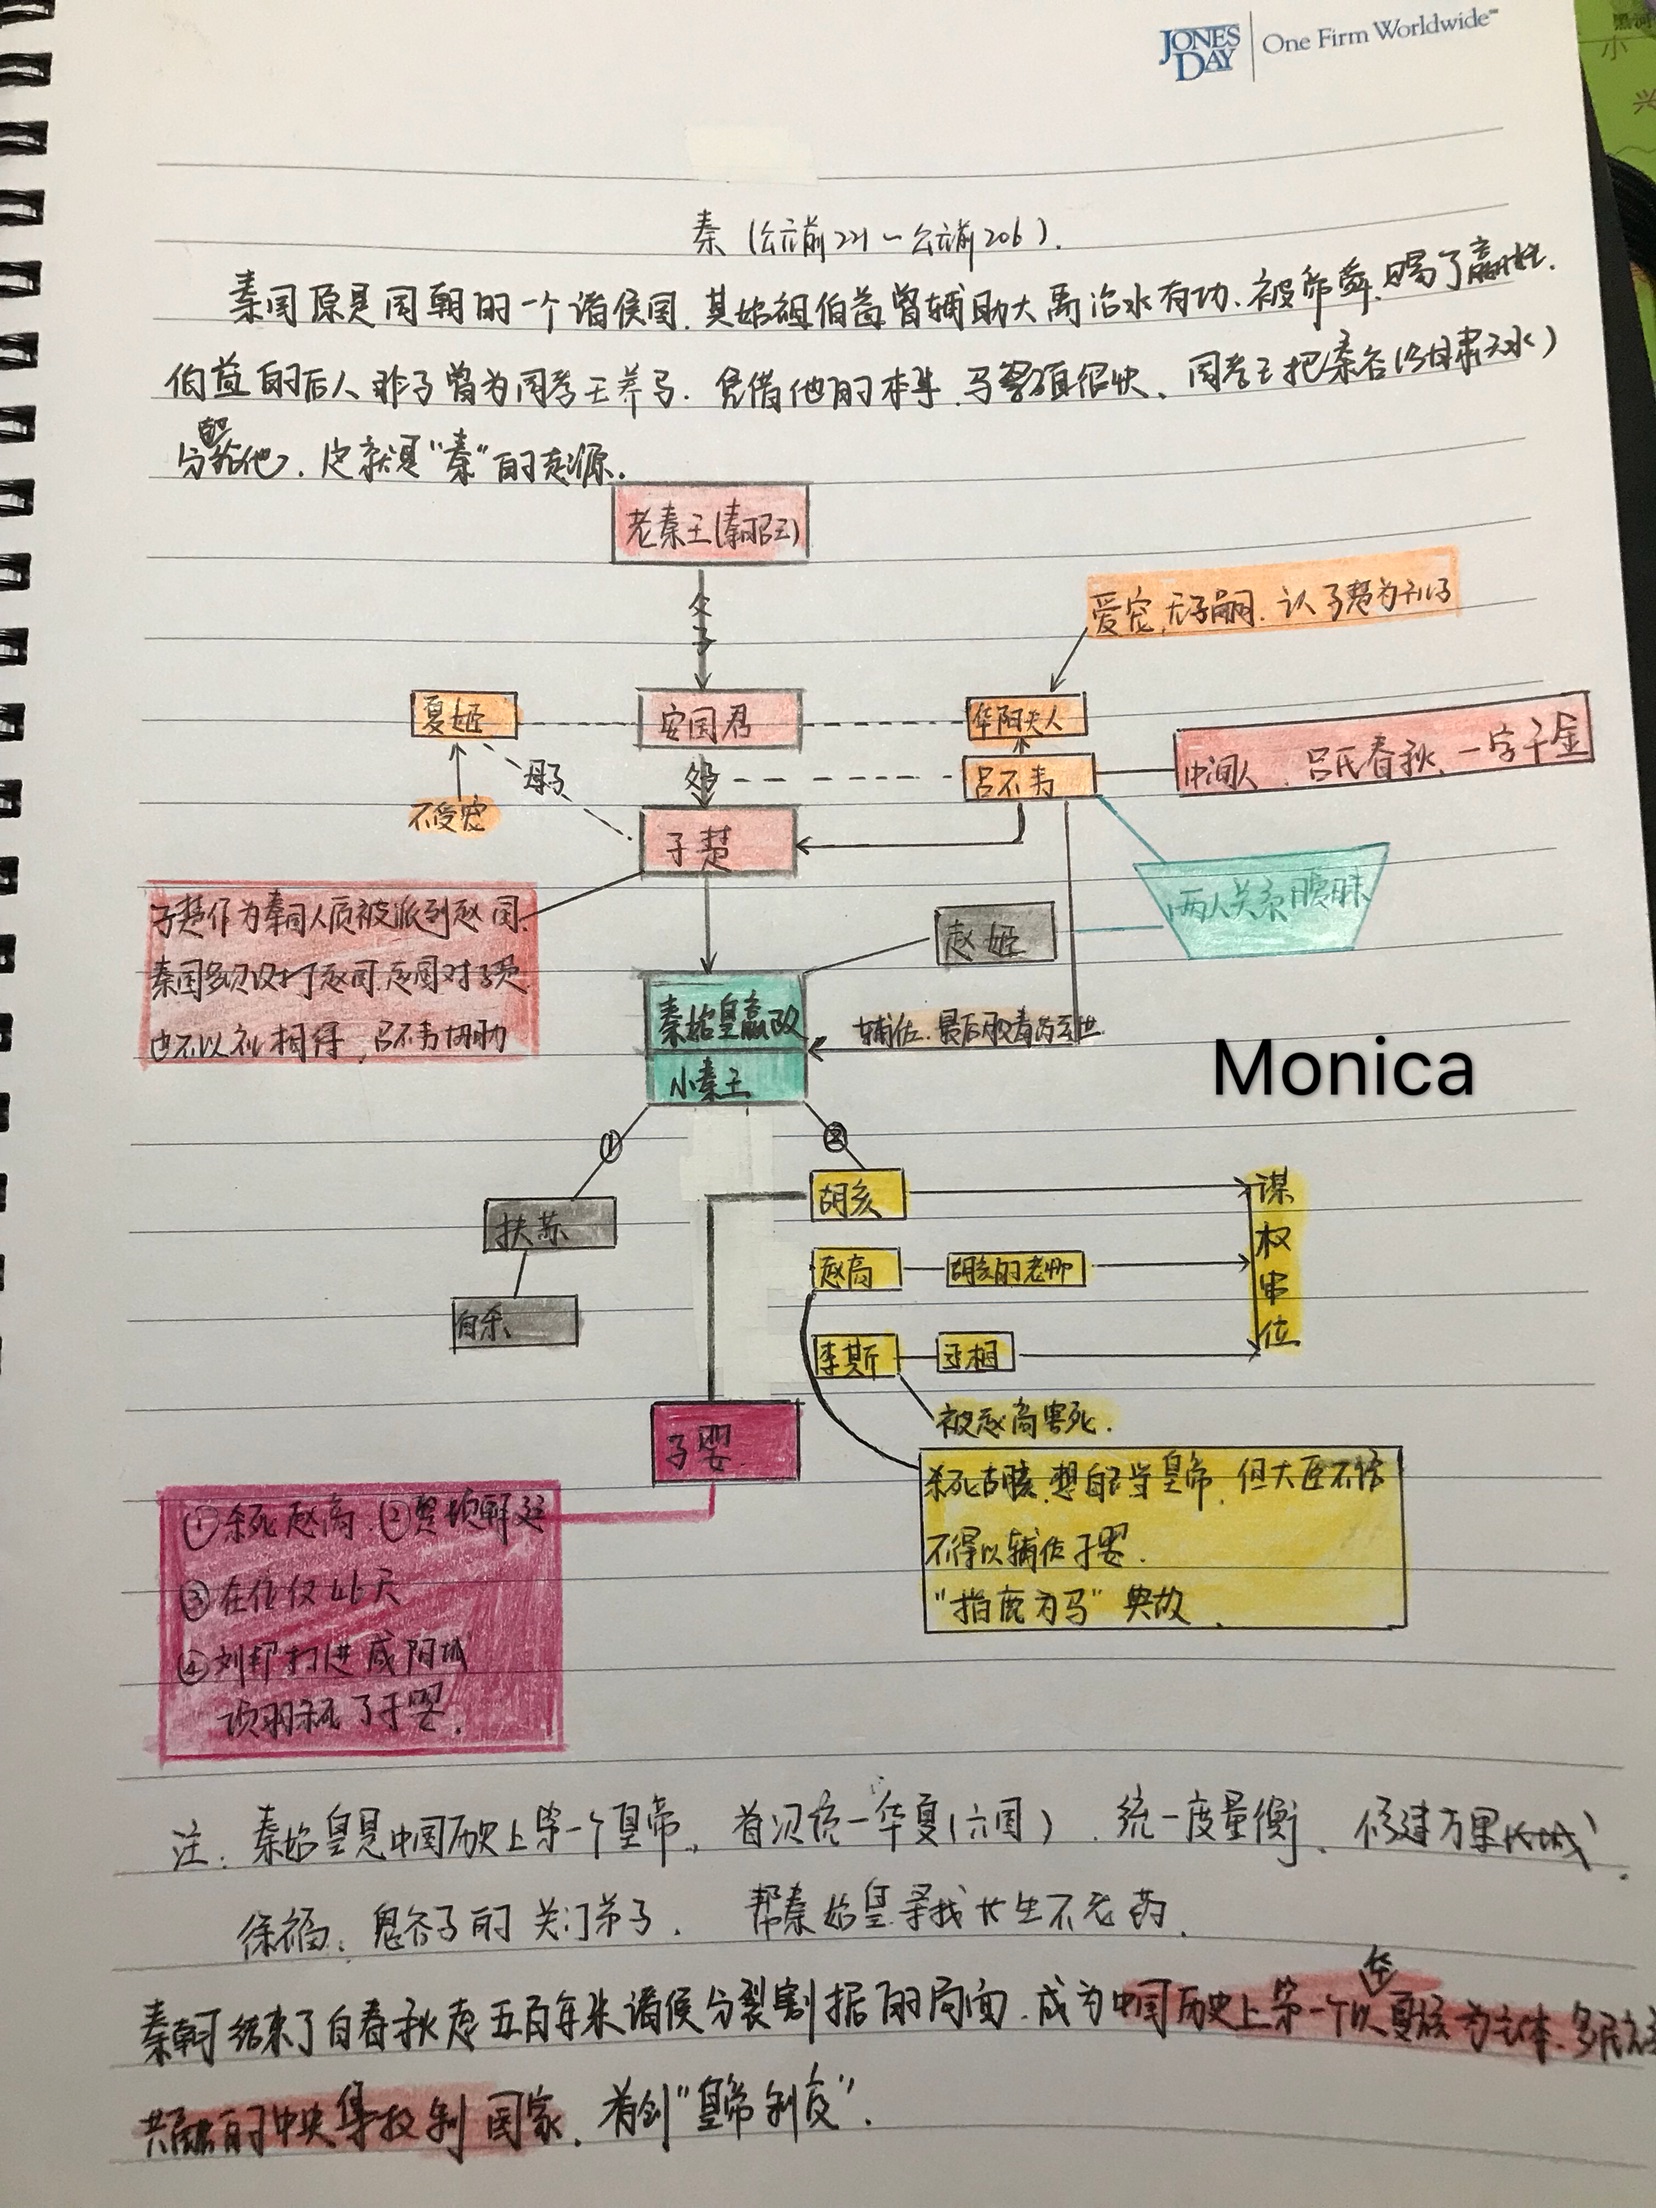 JONES DAY One Firm Worldwide
黑河
小
兴
秦（公元前221～公元前206）.
秦国原是周朝的一个诸侯国，其始祖伯益曾辅助大禹治水有功、被帝舜赐了嬴姓.
伯益的后人非子曾为周孝王养马. 凭借他的本事，马繁殖很快、周孝王把秦谷（今甘肃天水）
分给他，这就是“秦”的起源.
老秦王（秦昭王）
父子
爱宠，无子嗣. 认子楚为儿子
夏姬
安国君
华阳夫人
母子
父子
吕不韦
中间人、吕氏春秋、一字千金
不受宠
子楚
两人关系暧昧
子楚作为秦国人质被派到赵国.
秦国多次攻打赵国. 赵国对子楚
也不以礼相待，吕不韦协助
赵姬
秦始皇嬴政
辅佐. 最后
小秦王
Monica
① ②
扶苏
胡亥
谋权串位
赵高 胡亥的老师
自杀
李斯 丞相
被赵高害死.
子婴
杀死胡亥，想自己当皇帝，但大臣不
不得以辅佐子婴.
“指鹿为马”典故.
①杀死赵高、②
③在位仅46天
④刘邦打进咸阳城
项羽杀死了子婴.
注：秦始皇是中国历史上第一个皇帝，首次统一华夏（六国）、统一度量衡、修建万里长城.
徐福：鬼谷子的关门弟子. 帮秦始皇寻找长生不老药.
秦朝结束了自春秋起五百年来诸侯分裂割据的局面，成为中国历史上第一个以华夏族为主体、多民族
共融的中央集权制国家，首创“皇帝制度”.